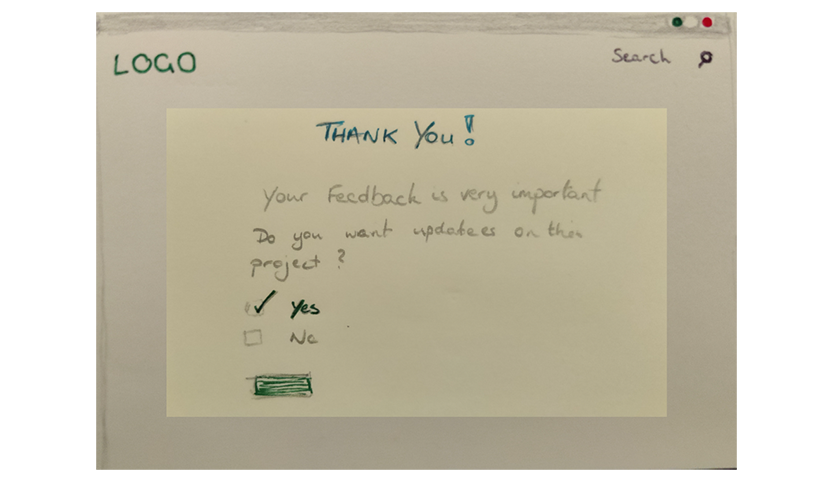 LOGO
Search
THANK You!
Your Feedback is very important
Do you want updatees on this
project ?
Yes
No